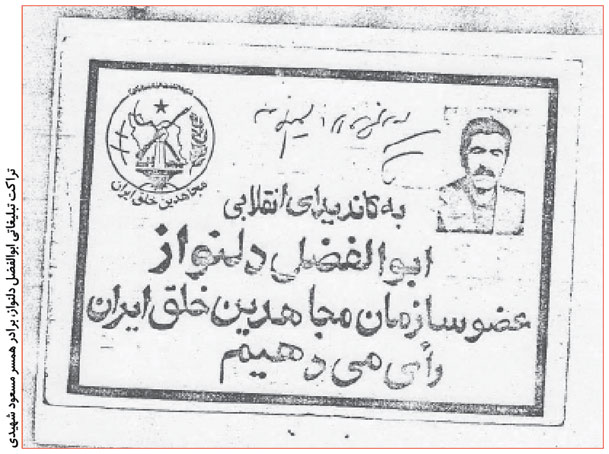 مجاهدین خلق ایران
به کاندیدای انقلابی
ابوالفضل دلنواز
عضو سازمان مجاهدین خلق ایران
رأی می دهیم
تراکت تبلیغاتی ابوالفضل دلنواز، برادر همسر مسعود شهیدی